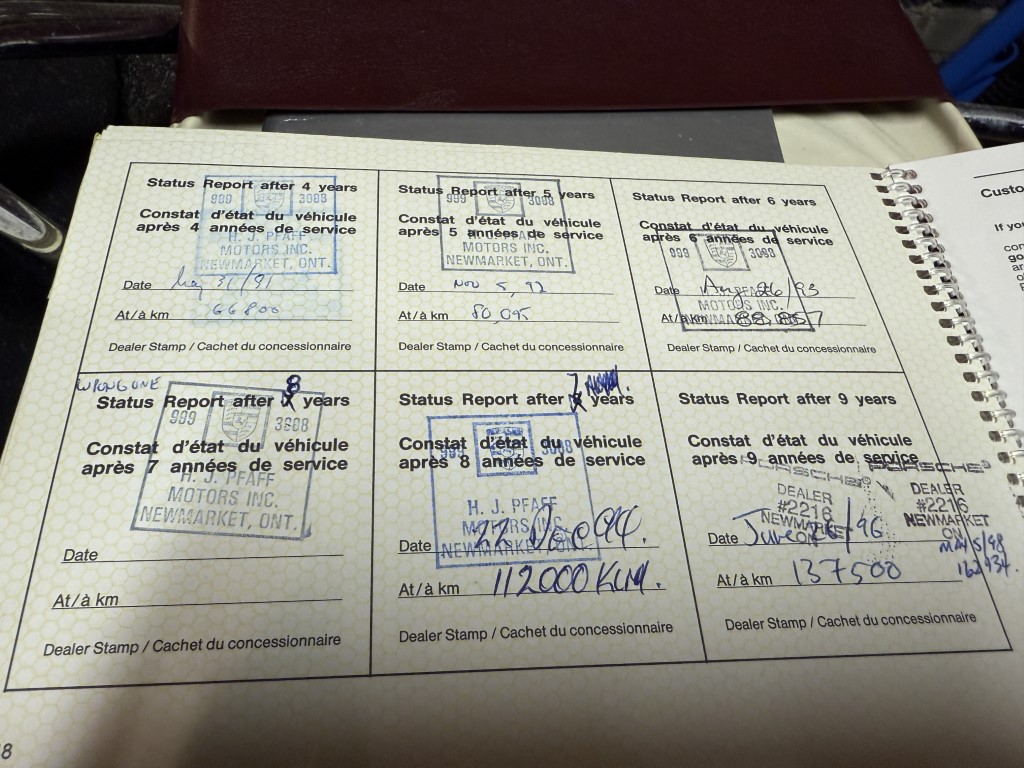 Status Report after 4 years
999 3098
Constat d'état du véhicule
après 4 années de service
H. J. PFAFF
MOTORS INC.
NEWMARKET, ONT.
Date 31/91
At/à km 66800
Dealer Stamp / Cachet du concessionnaire
Status Report after 5 years
999 3098
Constat d'état du véhicule
après 5 années de service
MOTORS INC.
NEWMARKET, ONT.
Date Nov 5, 92
At/à km 80,095
Dealer Stamp / Cachet du concessionnaire
Status Report after 6 years
Constat d'état du véhicule
après 6 années de service
999 3098
Date Aug 26/93
MOTORS INC.
At/à km 88,857
Dealer Stamp / Cachet du concessionnaire
WRONG ONE 8
Status Report after years
999 3098
Constat d'état du véhicule
après 7 années de service
H. J. PFAFF
MOTORS INC.
NEWMARKET, ONT.
Date
At/à km
Dealer Stamp / Cachet du concessionnaire
7
Status Report after years
Constat d'état du véhicule
après 8 années de service
H. J. PFAFF
MOTORS INC.
NEWMARKET
Date 22 Dec 94.
At/à km 112000 Km.
Dealer Stamp / Cachet du concessionnaire
Status Report after 9 years
Constat d'état du véhicule
après 9 années de service
PORSCHE
DEALER
#2216
NEWMARKET
ON
PORSCHE
DEALER
#2216
NEWMARKET
ON
Date June 26/96
At/à km 137500
MAY 5/98
162934.
Dealer Stamp / Cachet du concessionnaire
Custo
If yo
con
go
8